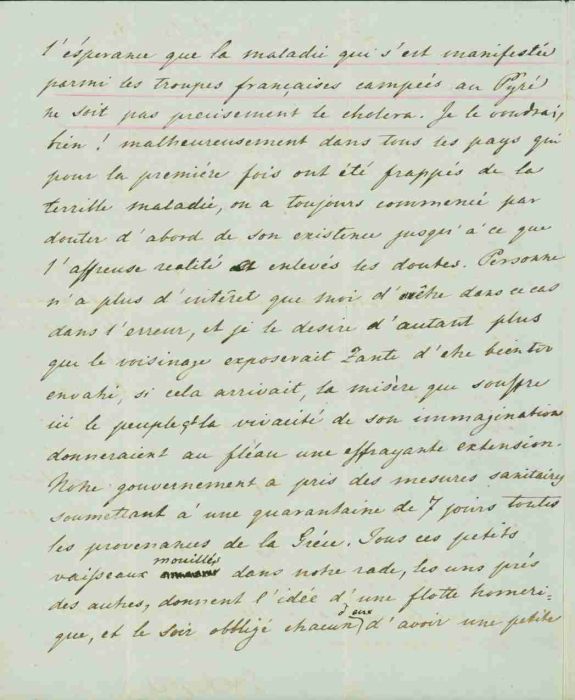 l'ésperance que la maladie qui s'est manifestée
parmi les troupes françaises campées au Pyré
ne soit pas precisement le cholera. Je le voudrais
bien! malheureusement dans tous les pays qui
pour la première fois ont été frappés de la
terrible maladie, on a toujours commencé par
douter d'abord de son existence jusqu'à ce que
l'affreuse realité a enlevés les doutes. Personne
n'a plus d'intêret que moi d'être dans ce cas
dans l'erreur, et je le desire d'autant plus
que le voisinage exposerait Zante d'etre bientot
envahi, si cela arrivait, la misère que souffre
ici le peuple et la vivacité de son immagination
donneraient au fléau une effrayante extension.
Notre gouvernement a pris des mesures sanitaires
soumettant à une quarantaine de 7 jours toutes
les provenances de la Grèce. Tous ces petits
vaisseaux mouillés dans notre rade, les uns près
des autres, donnent l'idée d'une flotte homeri=
que, et le soir obbligé chacun d'eux d'avoir une petite